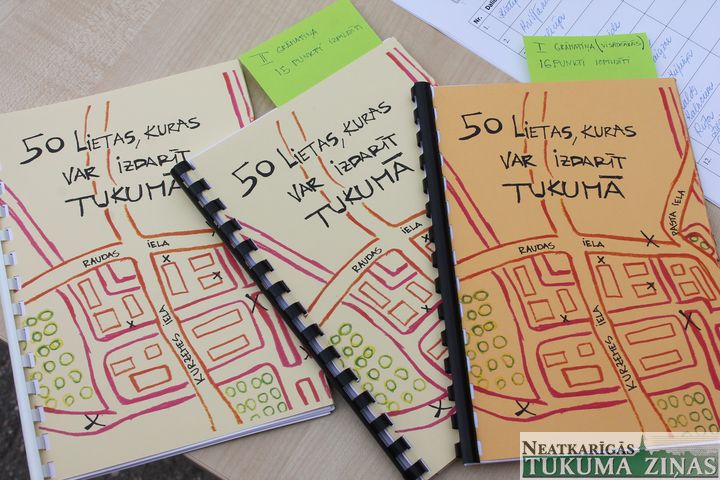 II GRĀMATIŅA
15 PUNKTI
I GRĀMATIŅA (VISĀDĀKĀS)
16 PUNKTI
Nr.
50 LIETAS, KURAS
VAR IZDARĪT
TUKUMĀ
RAUDAS IELA
KURZEMES IELA
50 LIETAS, KURAS
VAR IZDARĪT
TUKUMĀ
50 LIETAS, KURAS
VAR IZDARĪT
TUKUMĀ
PASTA IELA
RAUDAS IELA
KURZEMES IELA
NEATKARĪGĀS
TUKUMA ZIŅAS